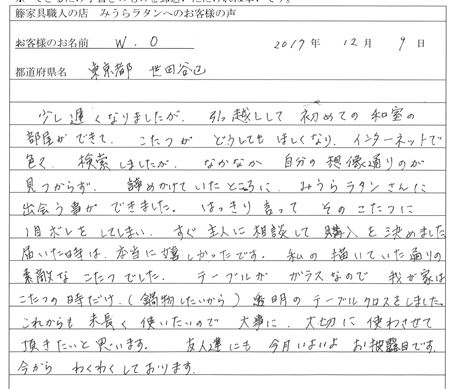 籐家具職人の店　みうらラタンへのお客様の声
お客様のお名前　W.O　2017年 12月 9日
都道府県名　東京都 世田谷区
少し遅くなりましたが、引越しして 初めての 和室の
部屋ができて、こたつが どうしても ほしくなり、インターネットで
色々、検索しましたが、なかなか 自分の 想像通りのが
見つからず、諦めかけていたところに、みうらラタンさんに
出会う事ができました。はっきり言って そのこたつに
1目ボレをしてしまい、すぐ主人に相談して 購入を決めました
届いた時は、本当に嬉しかったです。私の描いていた通りの
素敵なこたつでした。テーブルが ガラスなので 我が家は
こたつの時だけ、(鍋物したいから) 透明の テーブルクロスをしました。
これからも 末長く 使いたいので 大事に、大切に 使わさせて
頂きたいと思います。友人達にも 今月いよいよ お披露目です。
今から わくわくしております。